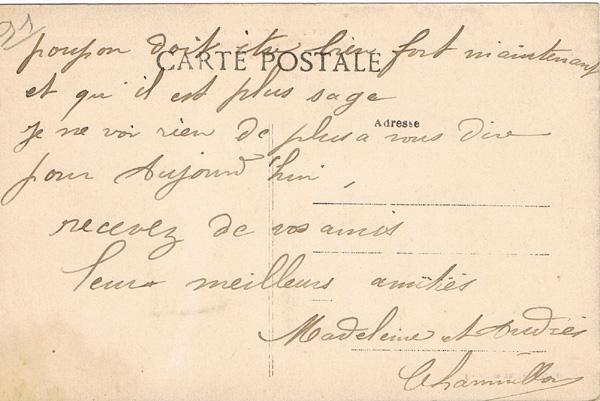 poupon doit être bien fort maintenant
CARTE POSTALE
et qu'il est plus sage
Adresse
Je ne voi rien de plus a vous dire
pour Aujourd'hui,
recevez de vos amis
leurs meilleurs amitiés
Madeleine et